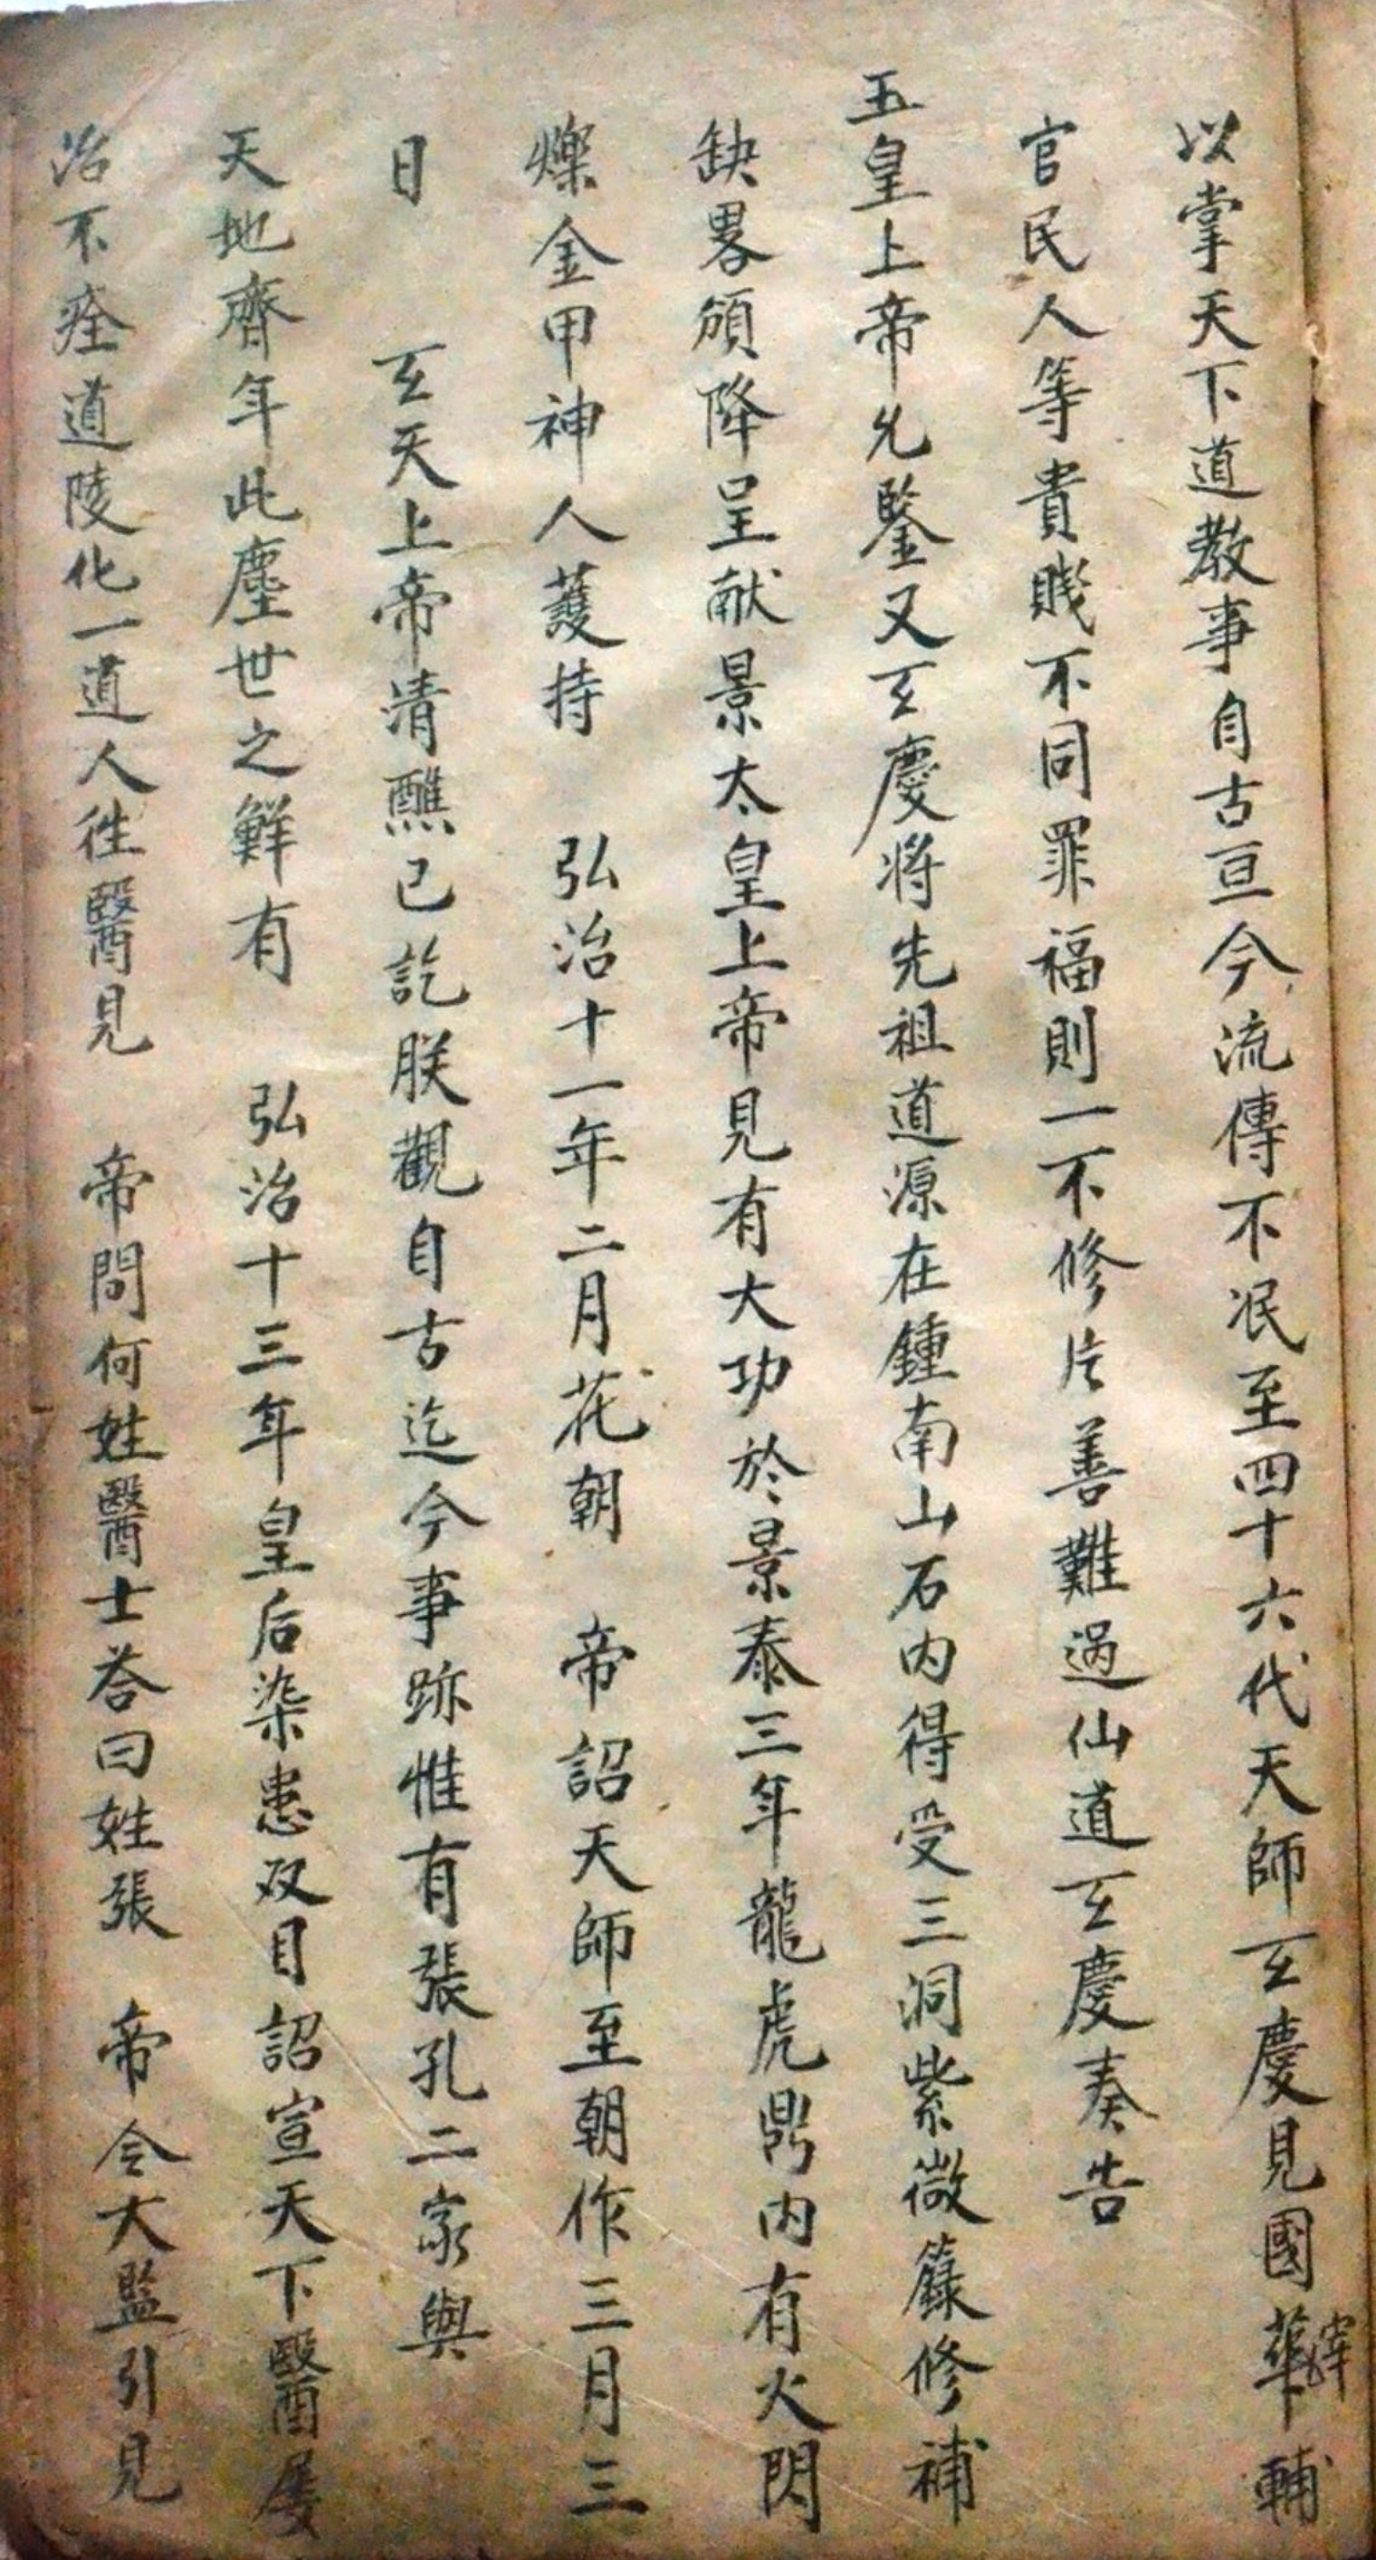 以掌天下道教事自古亘今流傳不泯至四十六代天師玄慶見國華宰輔
官民人等貴賤不同罪福則一不修片善難過仙道玄慶奏告
五皇上帝允鑒又玄慶將先祖道源在鍾南山石內得受三洞紫微籙修補
缺畧頒降呈献景太皇上帝見有大功於景泰三年龍虎鼎內有火閃
爍金甲神人護持 弘治十一年二月花朝 帝詔天師至朝作三月三
日 玄天上帝清醮已訖朕觀自古迄今事跡惟有張孔二家與
天地齊年此塵世之鮮有 弘治十三年皇后染患双目詔宣天下醫屡
治不痊道陵化一道人徃醫見 帝問何姓醫士荅曰姓張 帝令大監引見